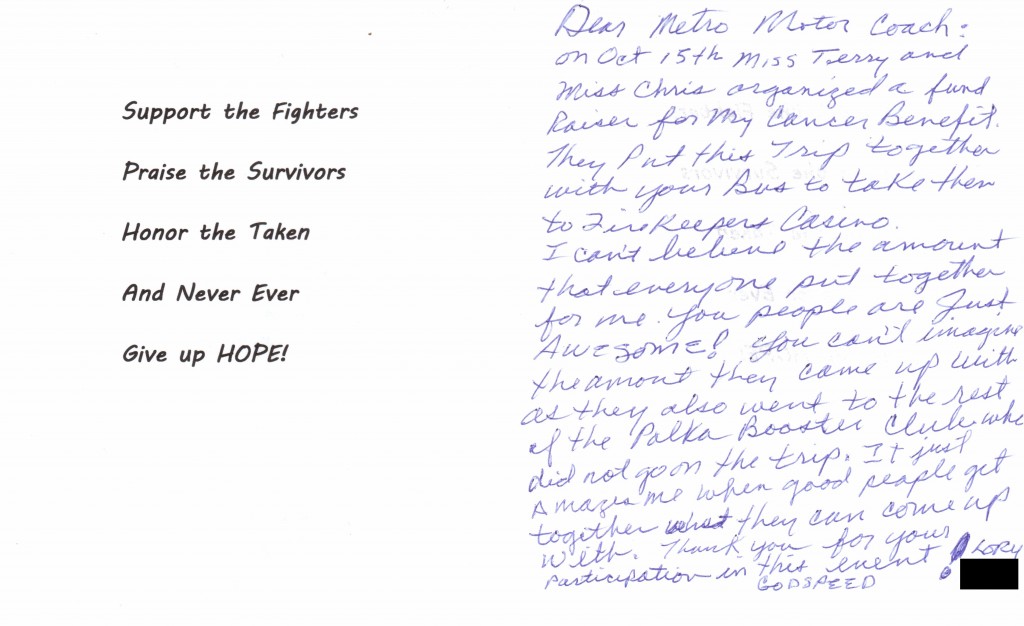 Support the Fighters
Praise the Survivors
Honor the Taken
And Never Ever
Give up HOPE!
Dear Metro Motor Coach:
on Oct 15th Miss Terry and
Miss Chris organized a fund
Raiser for My Cancer Benefit.
They Put this Trip together
with your Bus to take them
to FireKeepers Casino.
I can't believe the amount
that everyone put together
for me. You people are Just
AWESOME! You can't imagine
the amont they came up with
as they also went to the rest
of the Polka Booster Club who
did not go on the trip. It just
Amazes me when good people get
together what they can come up
with. Thank you for your
Participation in this event! LORY
GODSPEED